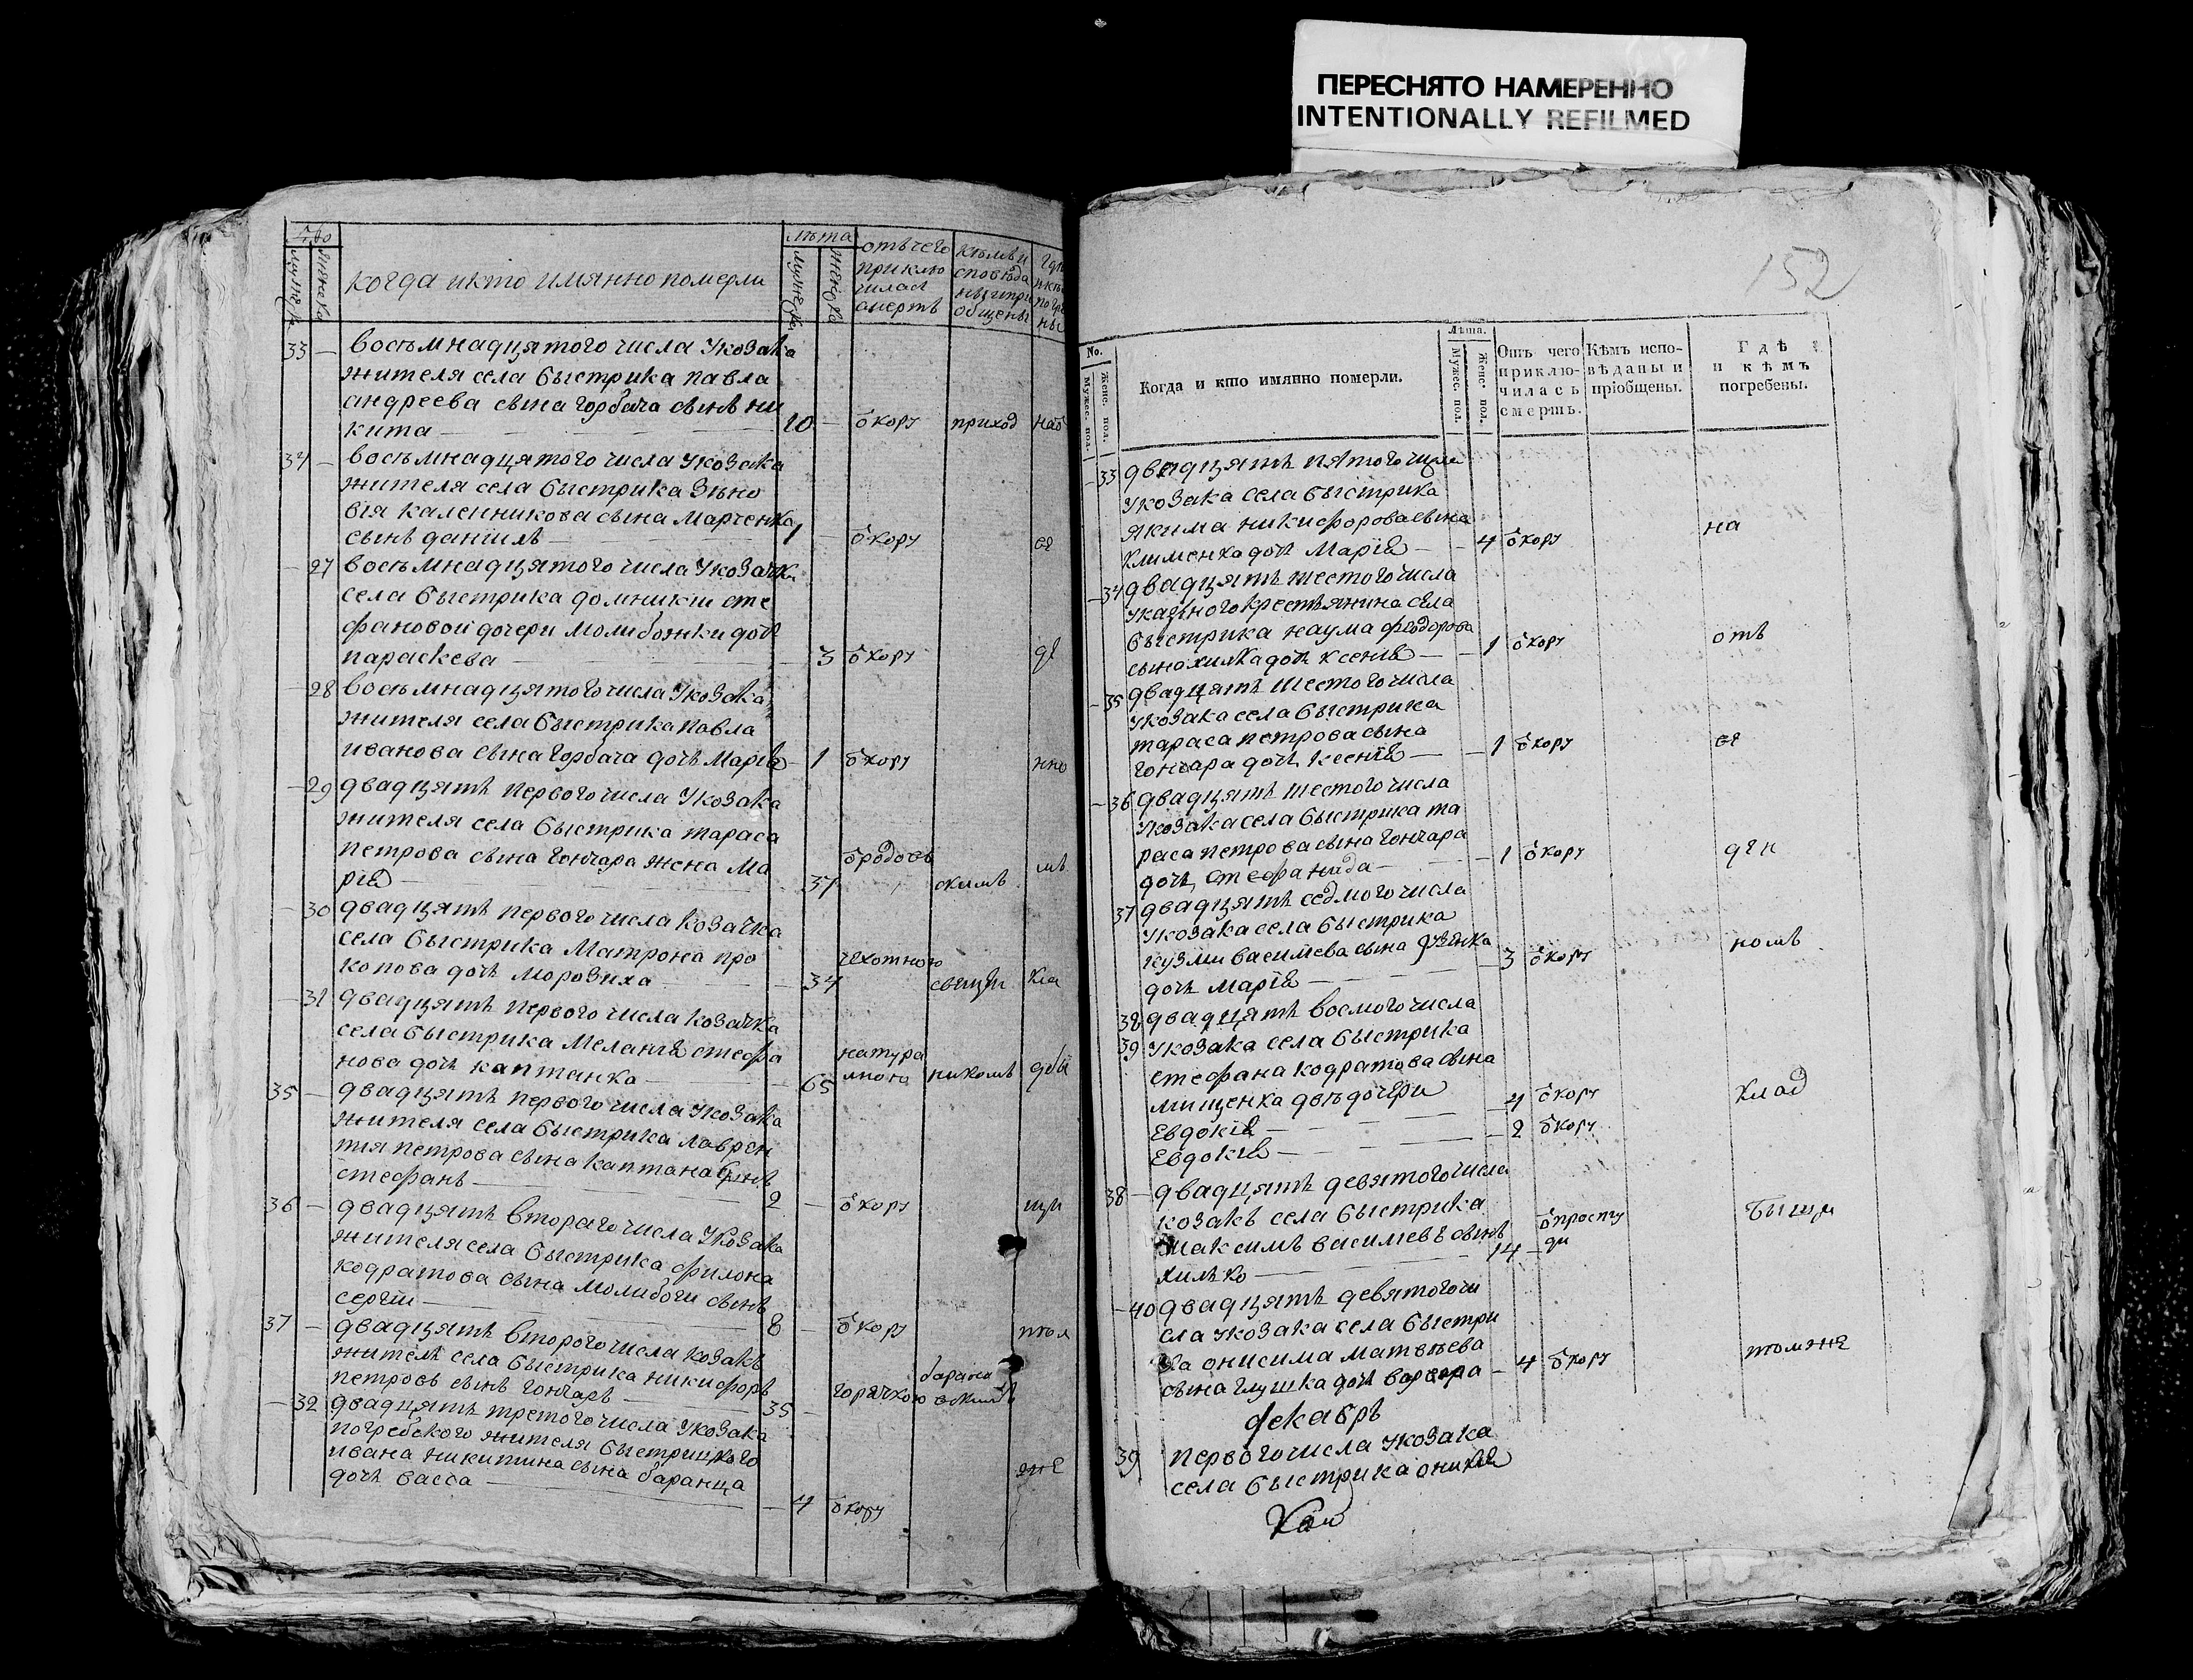 ПЕРЕСНЯТО НАМЕРЕННО
INTENTIONALLY REFILMED
152
когда икто имянно померли
лѣта
отъчего приключилас смерть
кѣмъ исповѣданы ипріобщены
33 — восъмнадцятого числа укозака
жителя села быстрика павла
андреева сына горбача сынъ ни
кита — 10 — ѿ кору приход на
34 — восъмнадцятого числа укозака
жителя села быстрика Зѣно
вія каленникова сына Марченка
сынъ даніилъ — 1 — ѿ кору
— 27 восъмнадцятого числа Укозачки
села быстрика домникіи сте
фановой дочери молибожки дочь
параскева — 3 ѿ кору
— 28 восъмнадцятого числа укозака
жителя села быстрика павла
иванова сына горбача дочь Марія — 1 ѿ кору
— 29 двадцять первого числа укозака
жителя села быстрика тараса
петрова сына гончара жена Ма
рія — 37 ѿ родовъ
— 30 двадцять первого числа козачка
села быстрика Матрона про
копова дочь морозиха — 34 чехотною
— 31 двадцять первого числа козачка
села быстрика Меланія стефа
нова дочь каптанка — 65 натура
лною
35 — двадцять первого числа укозака
жителя села быстрика лаврен
тія петрова сына каптана сынъ
стефанъ — 2 — ѿ кору
36 — двадцять второго числа укозака
жителя села быстрика филона
кодратова сына молибоги сынъ
сергіи — 8 — ѿ кору
37 — двадцять второго числа козакъ
житель села быстрика никифоръ
петровъ сынъ гончаръ — 35 — горячкою
— 32 двадцять третого числа укозака
погребского жителя быстрицкого
ивана никитина сына баранца
дочь васса — 4 ѿ кору
No.
Мужес. пол.
Женс. пол.
Когда и кто имянно померли.
Лѣта.
Мужес. пол.
Женс. пол.
Отъ чего приключилась смерть.
Кѣмъ исповѣданы и пріобщены.
Гдѣ и кѣмъ погребены.
— 33 двадцять пятого числа
укозака села быстрика
якима никифорова сына
клименка дочь Марія — 4 ѿ кору на
— 34 двадцять шестого числа
указъного крестянина села
быстрика наума феодорова
сына хилка дочь ксенія — 1 ѿ кору отъ
— 35 двадцять шестого числа
укозака села быстрика
тараса петрова сына
гончара дочь ксенія — 1 ѿ кору ве
— 36 двадцять шестого числа
укозака села быстрика та
раса петрова сына гончара
дочь стефанида — 1 ѿ кору ден
37 двадцять седмого числа
укозака села быстрика
кузми василева сына
дочь марія — 3 ѿ кору номъ
38 двадцять восмого числа
39 укозака села быстрика
стефана кодратова сына
мищенка двѣ дочери
Евдокія — 4 ѿ кору клад
Евдокія — 2 ѿ кору
38 — двадцять девятого числа
козакъ села быстрика
максимъ василевъ сынъ
хилько — 14 — ѿ просту
ди бищи
— 40 двадцять девятого чи
сла укозака села быстри
ка онисима матвѣева
сына глушка дочь варвара — 4 ѿ кору томже
декабрь
39 первого числа укозака
села быстрика